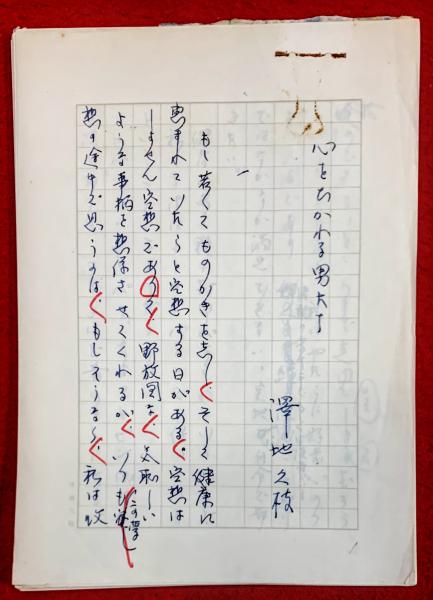 心をひかれる男たち
澤地久枝
一
もし若くてものかきを志し、そして健康に
恵まれていたらと空想する日がある。空想は
しょせん空想であって、野放図な、気恥しい
ような事柄を想像させてくれるが、いつも
この夢
想の途中で思うのは、もしそうなら、私は